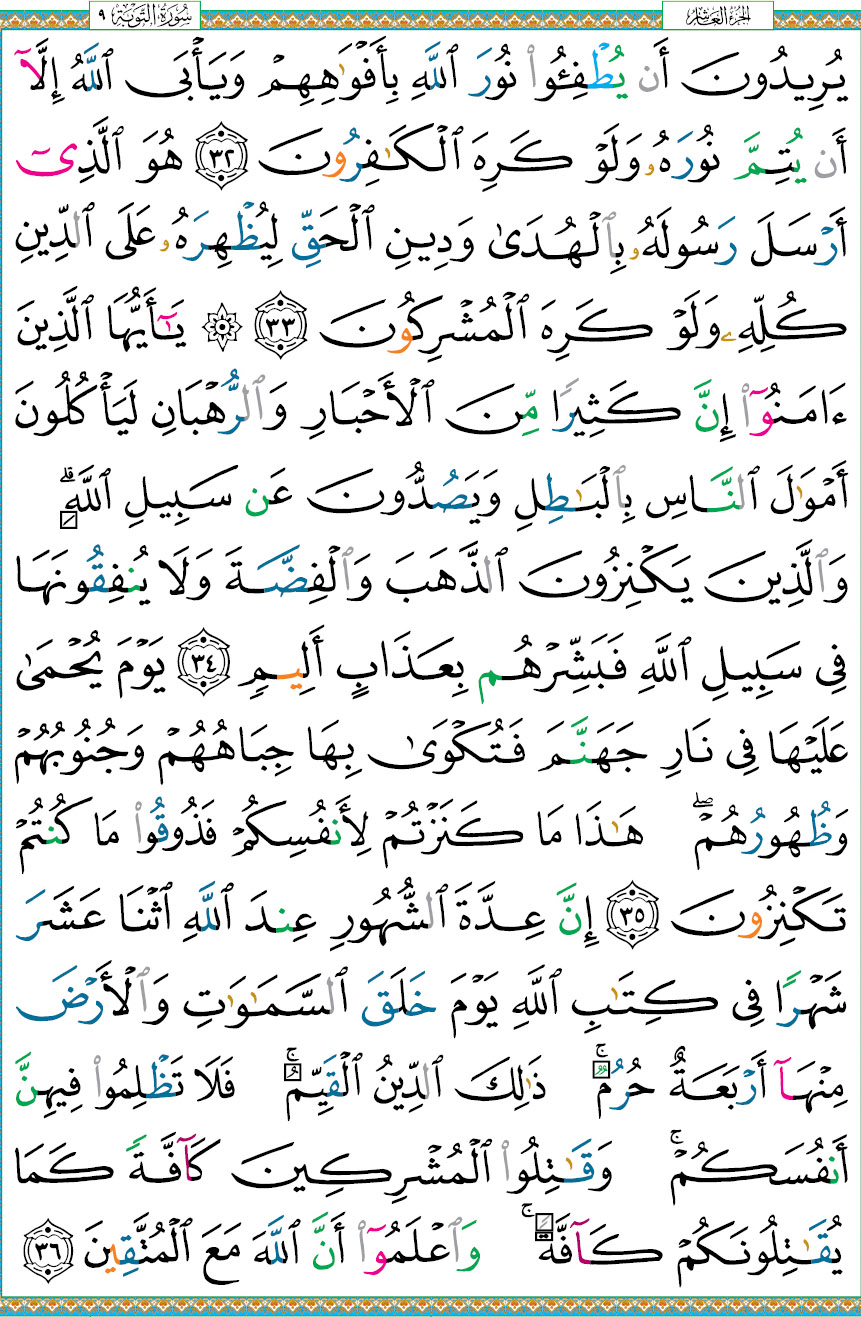 الجزء العاشر
سُورَةُ التَّوْبَةِ ٩
يُرِيدُونَ أَن يُطْفِـُٔوا۟ نُورَ ٱللَّهِ بِأَفْوَٰهِهِمْ وَيَأْبَى ٱللَّهُ إِلَّآ
أَن يُتِمَّ نُورَهُۥ وَلَوْ كَرِهَ ٱلْكَـٰفِرُونَ ٣٢ هُوَ ٱلَّذِىٓ
أَرْسَلَ رَسُولَهُۥ بِٱلْهُدَىٰ وَدِينِ ٱلْحَقِّ لِيُظْهِرَهُۥ عَلَى ٱلدِّينِ
كُلِّهِۦ وَلَوْ كَرِهَ ٱلْمُشْرِكُونَ ٣٣ ۞ يَـٰٓأَيُّهَا ٱلَّذِينَ
ءَامَنُوٓا۟ إِنَّ كَثِيرًا مِّنَ ٱلْأَحْبَارِ وَٱلرُّهْبَانِ لَيَأْكُلُونَ
أَمْوَٰلَ ٱلنَّاسِ بِٱلْبَـٰطِلِ وَيَصُدُّونَ عَن سَبِيلِ ٱللَّهِ ۗ
وَٱلَّذِينَ يَكْنِزُونَ ٱلذَّهَبَ وَٱلْفِضَّةَ وَلَا يُنفِقُونَهَا
فِى سَبِيلِ ٱللَّهِ فَبَشِّرْهُم بِعَذَابٍ أَلِيمٍ ٣٤ يَوْمَ يُحْمَىٰ
عَلَيْهَا فِى نَارِ جَهَنَّمَ فَتُكْوَىٰ بِهَا جِبَاهُهُمْ وَجُنُوبُهُمْ
وَظُهُورُهُمْ ۖ هَـٰذَا مَا كَنَزْتُمْ لِأَنفُسِكُمْ فَذُوقُوا۟ مَا كُنتُمْ
تَكْنِزُونَ ٣٥ إِنَّ عِدَّةَ ٱلشُّهُورِ عِندَ ٱللَّهِ ٱثْنَا عَشَرَ
شَهْرًا فِى كِتَـٰبِ ٱللَّهِ يَوْمَ خَلَقَ ٱلسَّمَـٰوَٰتِ وَٱلْأَرْضَ
مِنْهَآ أَرْبَعَةٌ حُرُمٌ ۚ ذَٰلِكَ ٱلدِّينُ ٱلْقَيِّمُ ۚ فَلَا تَظْلِمُوا۟ فِيهِنَّ
أَنفُسَكُمْ ۚ وَقَـٰتِلُوا۟ ٱلْمُشْرِكِينَ كَآفَّةً كَمَا
يُقَـٰتِلُونَكُمْ كَآفَّةً ۚ وَٱعْلَمُوٓا۟ أَنَّ ٱللَّهَ مَعَ ٱلْمُتَّقِينَ ٣٦